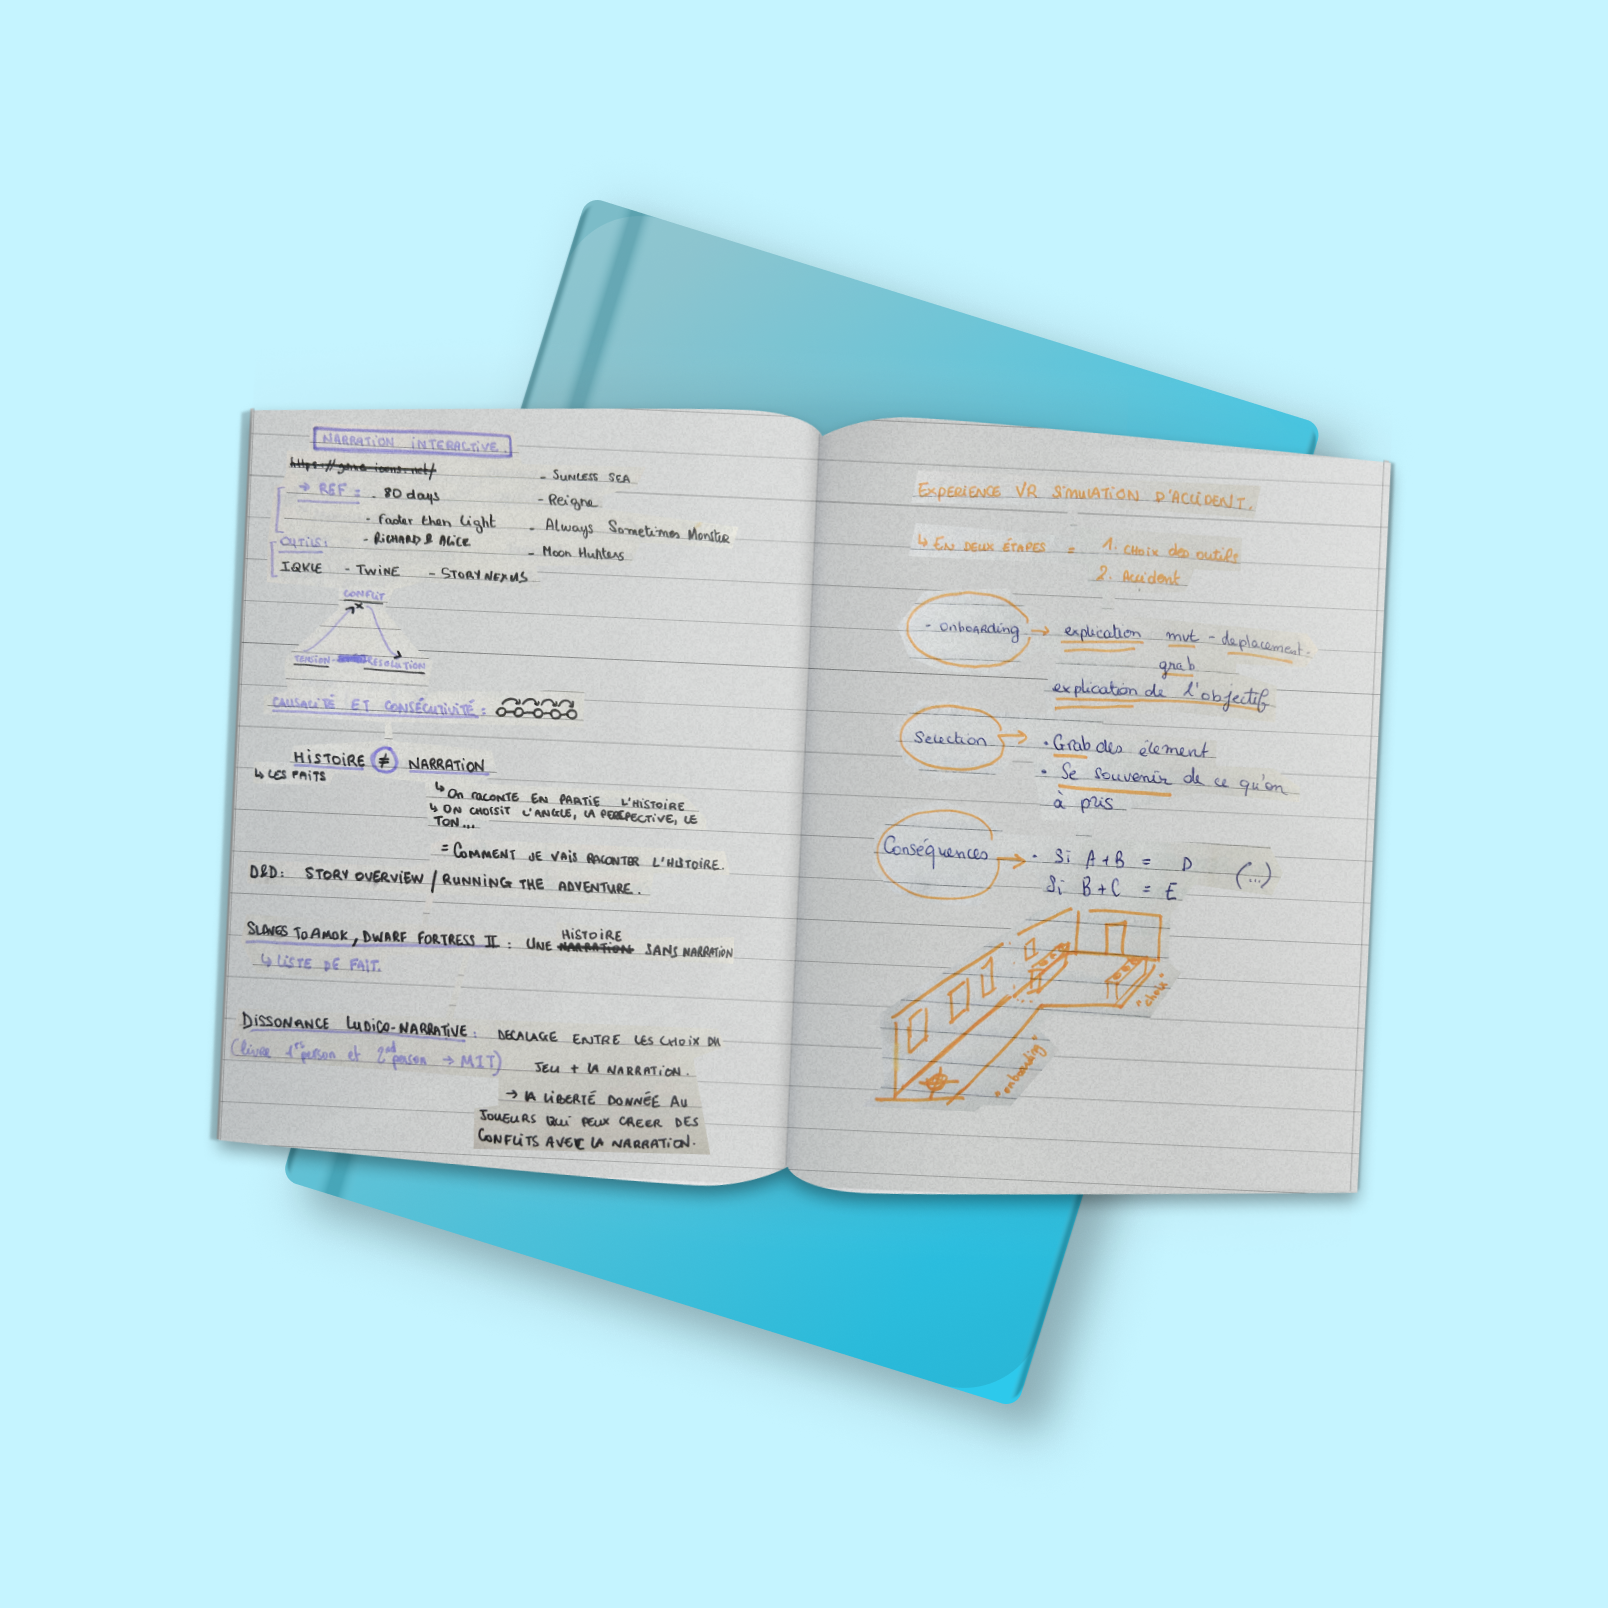 NARRATION INTERACTIVE.
https://game-icons.net/
→ REF :
. 80 days
- Faster then light
- RICHARD & ALICE
- SUNLESS SEA
- Reigne
- Always Sometimes Monster
- Moon Hunters
OUTILS:
IQKLE - TWINE - STORYNEXUS
CONFLIT
TENSION - RESOLUTION
CAUSALITÉ ET CONSÉCUTIVITÉ :
HISTOIRE ≠ NARRATION
↳ LES FAITS
↳ On RACONTE EN PARTIE L'HISTOIRE
↳ ON CHOISIT L'ANGLE, LA PERSPECTIVE, LE
TON...
= COMMENT JE VAIS RACONTER L'HISTOIRE.
D&D: STORY OVERVIEW / RUNNING THE ADVENTURE.
SLAVES TO AMOK, DWARF FORTRESS II : UNE NARRATION HISTOIRE SANS NARRATION
↳ LISTE DE FAIT.
DISSONANCE LUDICO-NARRATIVE : DECALAGE ENTRE LES CHOIX DU
(livre 1er person et 2nd person → MIT)
JEU + LA NARRATION.
→ LA LIBERTÉ DONNÉE AU
JOUEURS QUI PEUX CREER DES
CONFLITS AVEC LA NARRATION.
EXPERIENCE VR SIMULATION D'ACCIDENT.
↳ EN DEUX ÉTAPES = 1. CHOIX des outils
2. Accident
- onboarding → explication mvt - deplacement.
grab
explication de l'objectif
Selection → • Grab des élement
• Se souvenir de ce qu'on
à pris
Conséquences → • Si A+B = D (...)
Si B+C = E
"choix"
"onboarding"